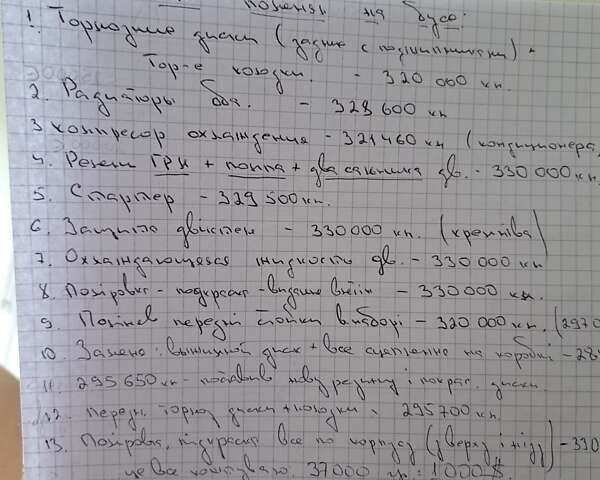 поміняв на бусе:
1. Тормозные диски (задние с подшипниками) +
Тор-е колодки. - 320 000 км.
2. Радиаторы оба. - 329 600 км
3 компресор охлаждения - 321460 км (кондиционера,
4. Ремень ГРМ + помпа + два сальника дв. - 330 000 км.
5. Стартер - 329 500 км.
6. Защита двигтен - 330000 км. (
7. Охлаждающеяся жидкость дв. - 330 000 км
8. Поліровка - подкраска - - 330000 км.
9. Поміняв передні стойки в зборі - 320 000 км. (2970
10. Замена: выжимной диск + все сцепление на коробкі - 28
11. 295 650 км - поставив нову резину і покрас. диски.
12. передн. тормоз диски + колодки - 295700 км.
13. Поліровка, підкраска все по корпусу (зверху і під) - 330
це все коштувало. 37000 гр: 1000$.